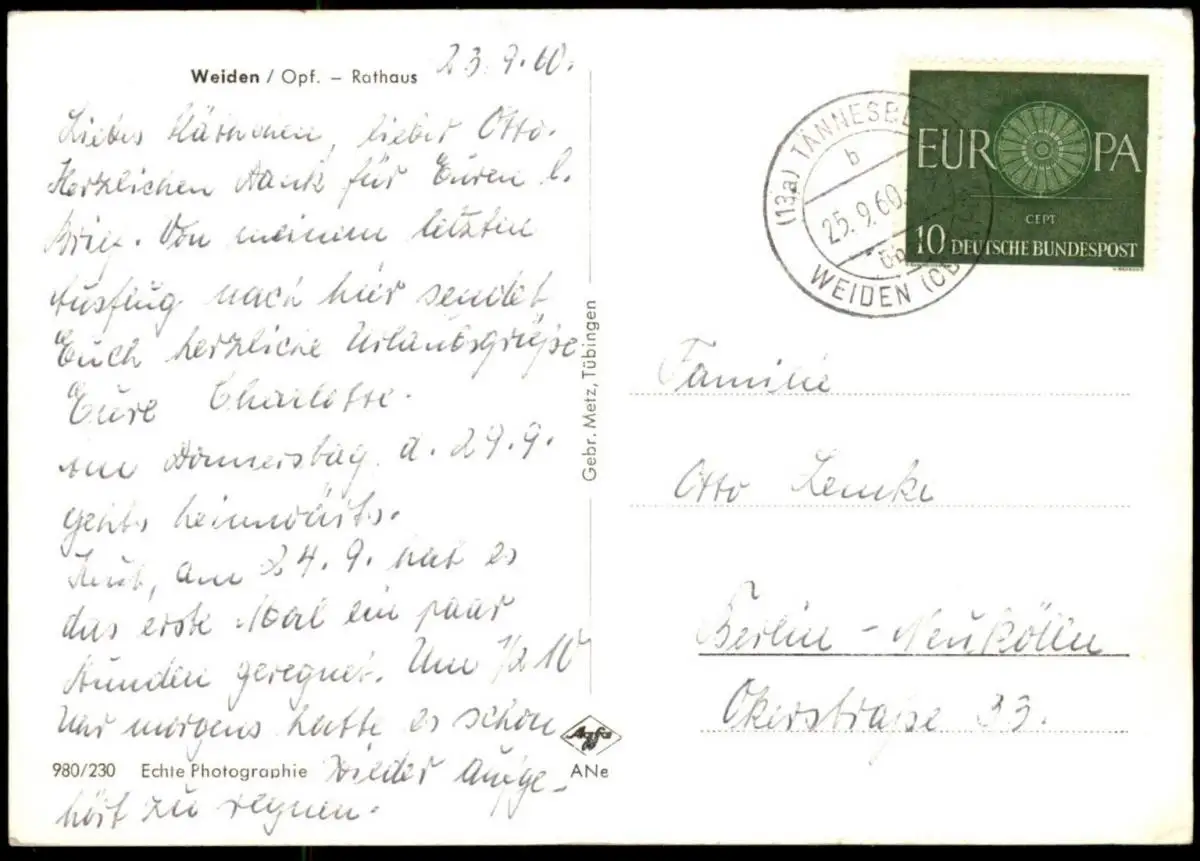 Weiden / Opf. – Rathaus
23.9.60.
Liebes Käthchen, lieber Otto.
Herzlichen Dank für Euren l.
Brief. Von meinem letzten
Ausflug nach hier sendet
Euch herzliche Urlaubsgrüße
Eure Charlotte.
Am Donnerstag, d. 29.9.
gehts heimwärts.
Heut, am 24.9. hat es
das erste Mal ein paar
Stunden geregnet. Um 1/2 10
Uhr morgens hatte es schon
wieder aufge-
hört zu regnen.
980/230 Echte Photographie
Agfa
ANe
Gebr. Metz, Tübingen
(13a) TÄNNESBE
b
25.9.60
WEIDEN (OB
EUROPA
CEPT
10 DEUTSCHE BUNDESPOST
Familie
Otto Lemke
Berlin – Neukölln
Okerstraße 33.